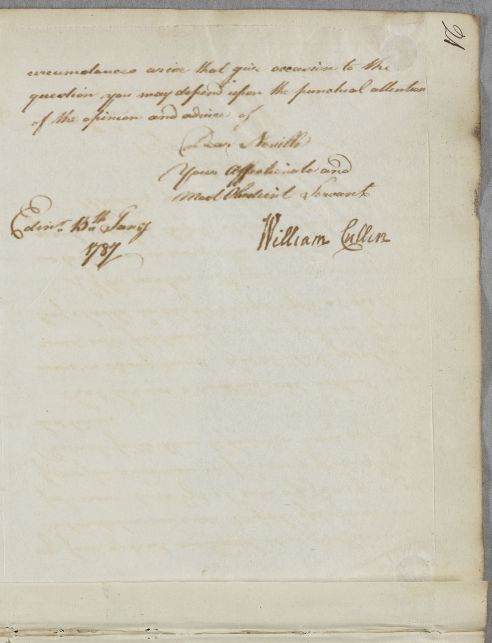 circumstances arise that give occasion to the
question you may depend upon the punctual attention
of the opinion and advice of
Dear Neville
Your Affectionate and
Most Obedient Servant
Edinr. 13th. Jany
1787
William Cullen